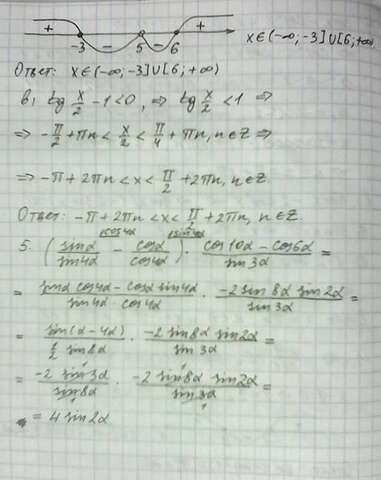 + - - + x∈(-∞; -3]∪[6; +∞)
-3 5 6
Ответ: x∈(-∞; -3]∪[6; +∞)
в) tg x/2 - 1 < 0, ⇒ tg x/2 < 1 ⇒
⇒ -π/2 + πn < x/2 < π/4 + πn, n∈Z ⇒
⇒ -π + 2πn < x < π/2 + 2πn, n∈Z
Ответ: -π + 2πn < x < π/2 + 2πn, n∈Z.
5. (sinα/sin4α - cosα/cos4α) · (cos10α - cos6α)/sin3α =
= (sinα cos4α - cosα sin4α)/(sin4α · cos4α) · (-2 sin8α sin2α)/sin3α =
= sin(α - 4α)/(1/2 sin8α) · (-2 sin8α sin2α)/sin3α =
= (-2 sin3α)/sin8α · (-2 sin8α sin2α)/sin3α =
= 4 sin2α